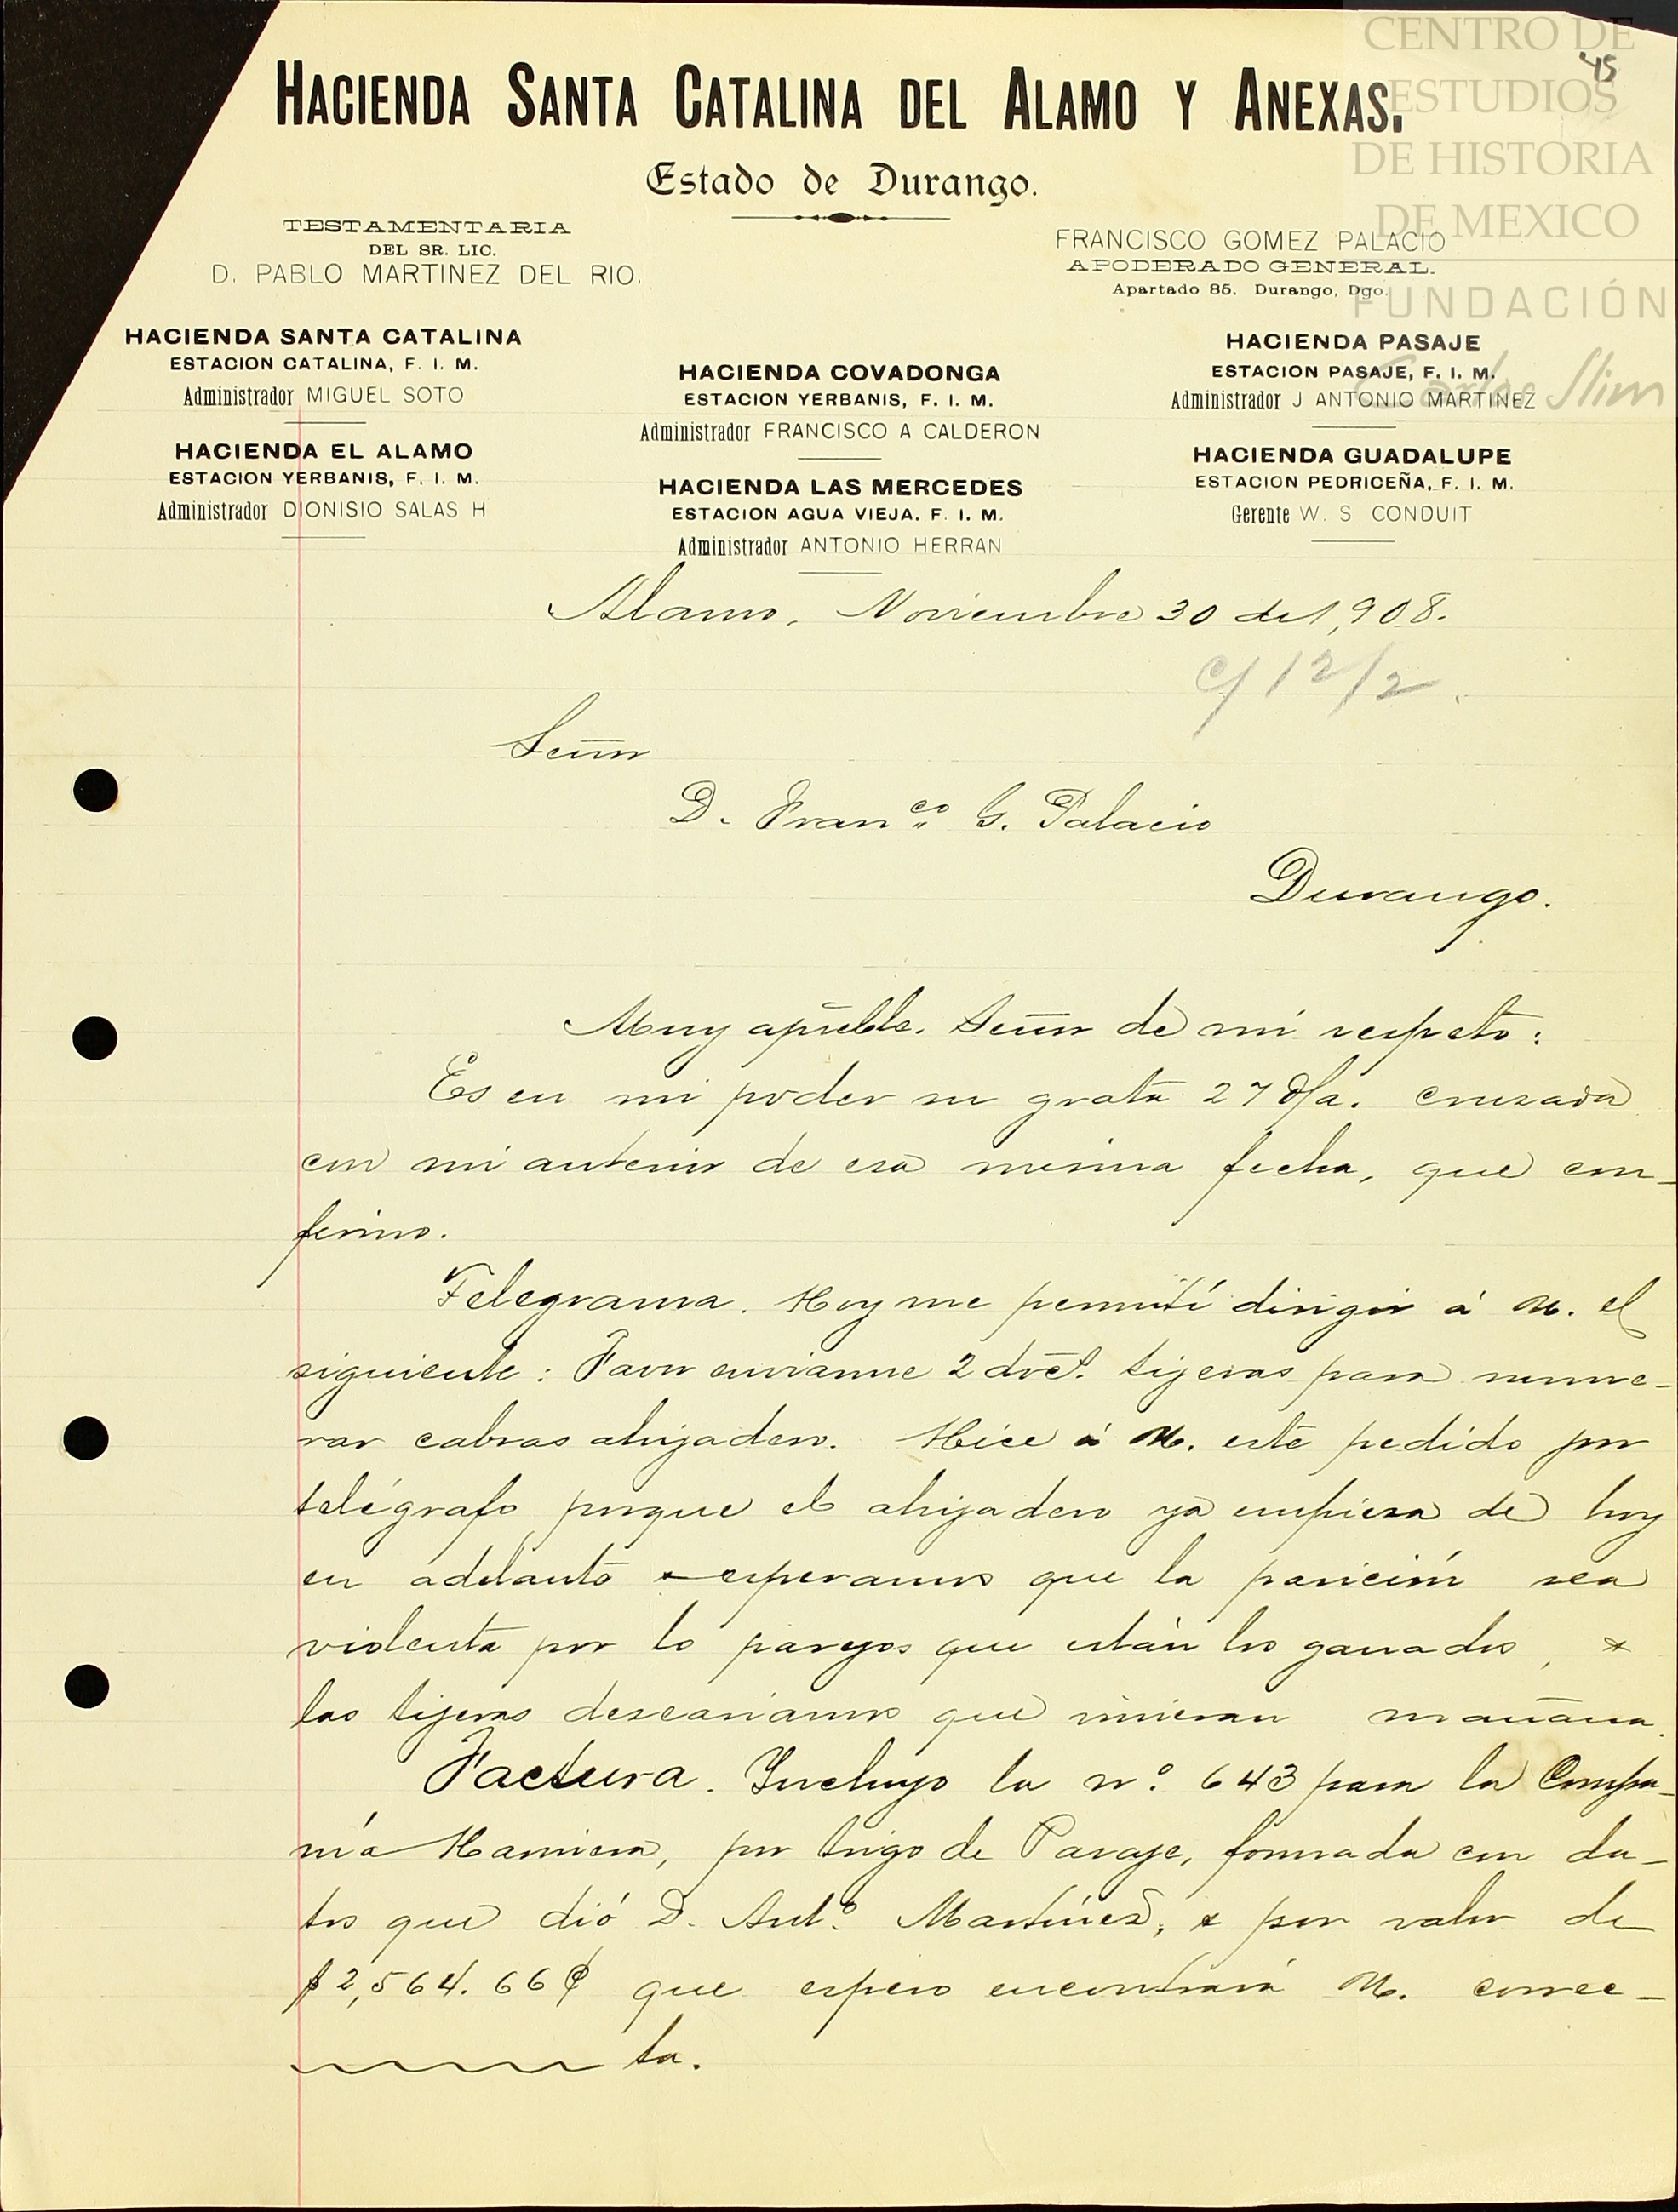 CENTRO DE
ESTUDIOS
DE HISTORIA
DE MEXICO
FUNDACIÓN
Carlos Slim
45
HACIENDA SANTA CATALINA DEL ALAMO Y ANEXAS.
Estado de Durango.
TESTAMENTARIA
DEL SR. LIC.
D. PABLO MARTINEZ DEL RIO.
FRANCISCO GOMEZ PALACIO
APODERADO GENERAL.
Apartado 85. Durango, Dgo.
HACIENDA SANTA CATALINA
ESTACION CATALINA, F. I. M.
Administrador MIGUEL SOTO
HACIENDA EL ALAMO
ESTACION YERBANIS, F. I. M.
Administrador DIONISIO SALAS H
HACIENDA COVADONGA
ESTACION YERBANIS, F. I. M.
Administrador FRANCISCO A CALDERON
HACIENDA LAS MERCEDES
ESTACION AGUA VIEJA. F. I. M.
Administrador ANTONIO HERRAN
HACIENDA PASAJE
ESTACION PASAJE, F. I. M.
Administrador J ANTONIO MARTINEZ
HACIENDA GUADALUPE
ESTACION PEDRICEÑA, F. I. M.
Gerente W. S CONDUIT
Alamo, Noviembre 30 de 1,908.
c/ 12/2.
Señor
D. Franco. G. Palacio
Durango.
Muy apreble. Señor de mi respeto:
Es en mi poder su grata 27 d/a. cruzada
con mi anterior de esa misma fecha, que con-
firmo.
Telegrama. Hoy me permití dirigir á U. el
siguiente: Favor enviarme 2 doc. tijeras para nume-
rar cabras ahijadero. Hice á U. este pedido por
telégrafo porque el ahijadero ya empieza de hoy
en adelante & esperamos que la parición sea
violenta por lo parejos que están los ganados, &
las tijeras desearíamos que vinieran mañana.
Factura. Incluyo la nº. 643 para la Compa-
nía Harinera, por trigo de Pasaje, formada con da-
tos que dió D. Antº. Martínez, & por valor de
$2,564.66¢ que espero encontrará U. correc-
ta.